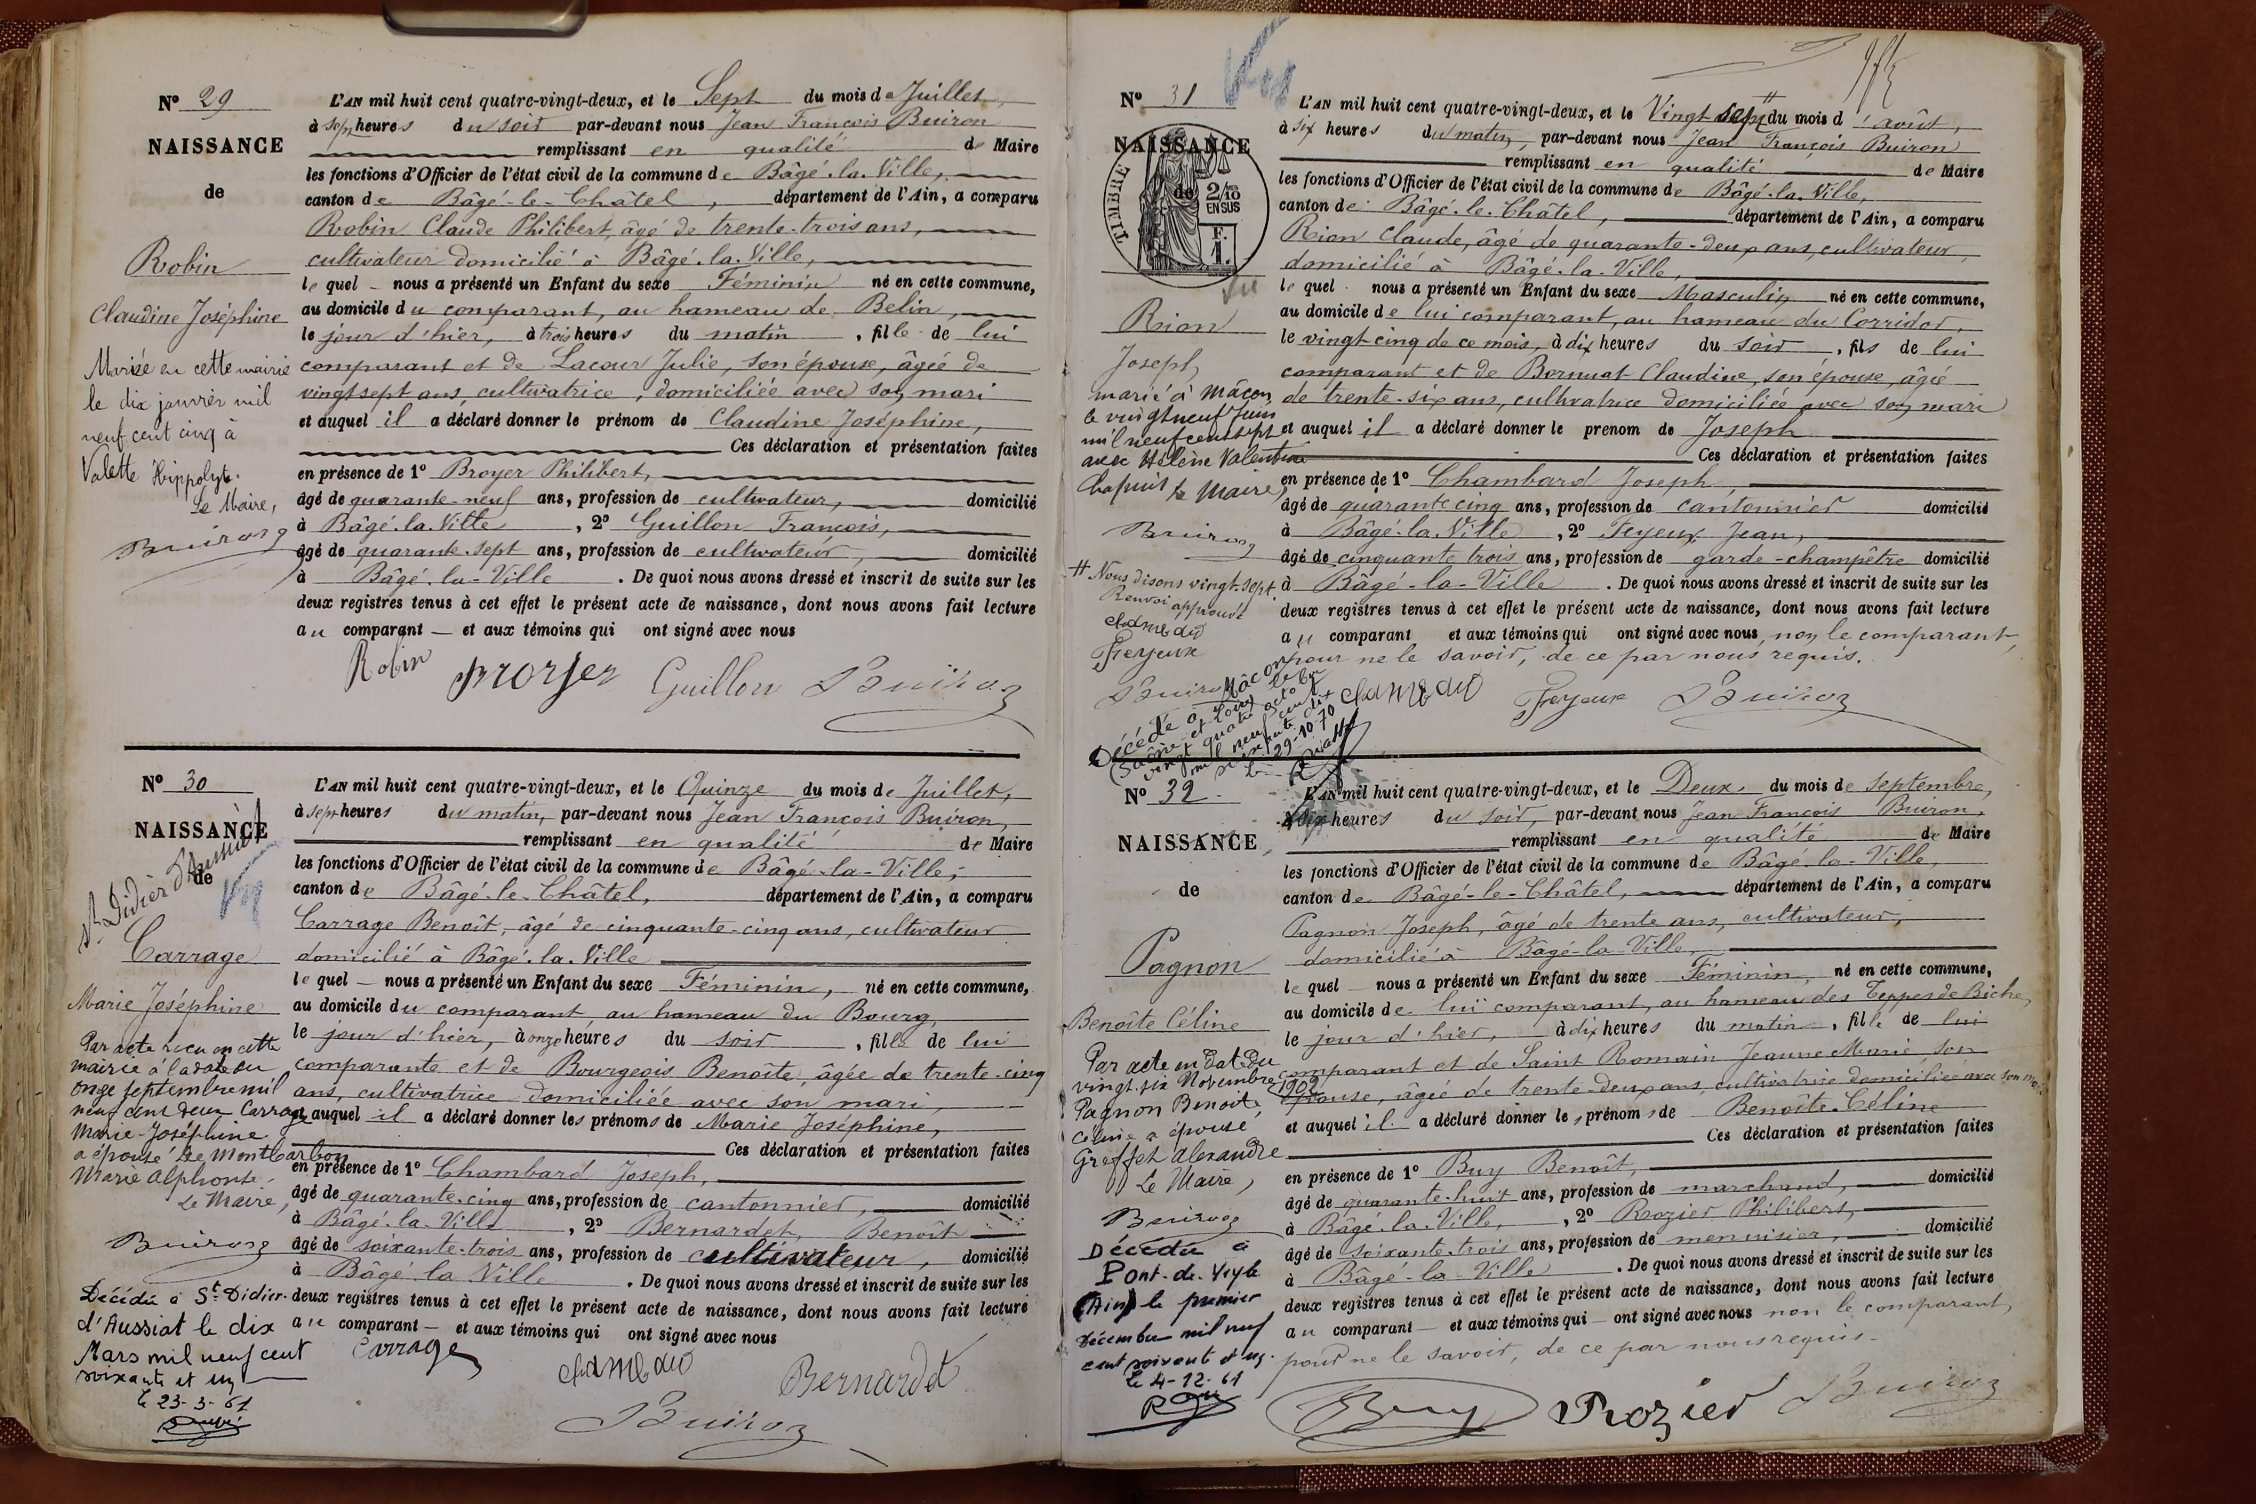 N° 29
NAISSANCE
de
Robin
Claudine Joséphine
Mariée en cette mairie
le dix janvier mil
neuf cent cinq à
Valette Hippolyte.
Le Maire,
Buiron
L'AN mil huit cent quatre-vingt-deux, et le Sept du mois de Juillet,
à sept heures du soir par-devant nous Jean François Buiron
remplissant en qualité de Maire
les fonctions d'Officier de l'état civil de la commune de Bâgé-la-Ville,
canton de Bâgé-le-Châtel, département de l'Ain, a comparu
Robin Claude Philibert, âgé de trente-trois ans,
cultivateur domicilié à Bâgé-la-Ville,
le quel nous a présenté un Enfant du sexe Féminin né en cette commune,
au domicile du comparant, au hameau de Belin,
le jour d'hier, à trois heures du matin, fille de lui
comparant et de Lacour Julie, son épouse, âgée de
vingt sept ans, cultivatrice, domiciliée avec son mari
et auquel il a déclaré donner le prénom de Claudine Joséphine,
Ces déclaration et présentation faites
en présence de 1° Broyer Philibert,
âgé de quarante-neuf ans, profession de cultivateur, domicilié
à Bâgé-la-Ville, 2° Guillon François,
âgé de quarante-sept ans, profession de cultivateur, domicilié
à Bâgé-la-Ville. De quoi nous avons dressé et inscrit de suite sur les
deux registres tenus à cet effet le présent acte de naissance, dont nous avons fait lecture
au comparant — et aux témoins qui ont signé avec nous
Robin Broyer Guillon Buiron
N° 30
NAISSANCE
de
St Didier d'Aussiat
Carrage
Marie Joséphine
Par acte reçu en cette
mairie à la date du
onze septembre mil
neuf cent deux Carrage
Marie-Joséphine
a épousé de Montcarbon
Marie Alphonse
Le Maire,
Buiron
Décédée à St-Didier-
d'Aussiat le dix
Mars mil neuf cent
soixante et un
le 23-3-61
L'AN mil huit cent quatre-vingt-deux, et le Quinze du mois de Juillet,
à sept heures du matin, par-devant nous Jean François Buiron,
remplissant en qualité de Maire
les fonctions d'Officier de l'état civil de la commune de Bâgé-la-Ville,
canton de Bâgé-le-Châtel, département de l'Ain, a comparu
Carrage Benoît, âgé de cinquante-cinq ans, cultivateur
domicilié à Bâgé-la-Ville
le quel — nous a présenté un Enfant du sexe Féminin, né en cette commune,
au domicile du comparant, au hameau du Bourg,
le jour d'hier, à onze heures du soir, fille de lui
comparante et de Bourgeois Benoîte, âgée de trente-cinq
ans, cultivatrice domiciliée avec son mari,
et auquel il a déclaré donner les prénoms de Marie Joséphine,
Ces déclaration et présentation faites
en présence de 1° Chambard Joseph,
âgé de quarante-cinq ans, profession de cantonnier, domicilié
à Bâgé-la-Ville, 2° Bernardet, Benoît
âgé de soixante-trois ans, profession de cultivateur, domicilié
à Bâgé la Ville. De quoi nous avons dressé et inscrit de suite sur les
deux registres tenus à cet effet le présent acte de naissance, dont nous avons fait lecture
au comparant — et aux témoins qui ont signé avec nous
Carrage Chambard Bernardet
Buiron
N° 31
NAISSANCE
de
TIMBRE
2/10
EN SUS
F.
1.
Rion
Joseph
marié à Mâcon
le vingt neuf Juin
mil neuf cent sept
avec Hélène Valentine
Le Maire,
Buiron
# Nous disons vingt-sept.
Renvoi approuvé
Chambard
Feyeux
Buiron
Décédé à Mâcon
(Saône-et-Loire) le
vingt quatre octobre
mil neuf cent
soixante dix
Le 29-10-70
L'AN mil huit cent quatre-vingt-deux, et le Vingt sept # du mois d'août,
à six heures du matin, par-devant nous Jean François Buiron
remplissant en qualité de Maire
les fonctions d'Officier de l'état civil de la commune de Bâgé-la-Ville,
canton de Bâgé-le-Châtel, département de l'Ain, a comparu
Rion Claude, âgé de quarante-deux ans, cultivateur,
domicilié à Bâgé-la-Ville,
le quel nous a présenté un Enfant du sexe Masculin né en cette commune,
au domicile de lui comparant, au hameau du Corridor,
le vingt-cinq de ce mois, à dix heures du soir, fils de lui
comparant et de Bornuat Claudine, son épouse, âgée
de trente-six ans, cultivatrice domiciliée avec son mari
et auquel il a déclaré donner le prenom de Joseph
Ces déclaration et présentation faites
en présence de 1° Chambard Joseph,
âgé de quarante cinq ans, profession de cantonnier domicilié
à Bâgé-la-Ville, 2° Feyeux Jean,
âgé de cinquante trois ans, profession de garde-champêtre domicilié
à Bâgé-la-Ville. De quoi nous avons dressé et inscrit de suite sur les
deux registres tenus à cet effet le présent acte de naissance, dont nous avons fait lecture
au comparant et aux témoins qui ont signé avec nous, non le comparant,
pour ne le savoir, de ce par nous requis.
Chambard Feyeux Buiron
N° 32
NAISSANCE
de
Pagnon
Benoîte Céline
Par acte en date du
vingt-six Novembre 1902
Pagnon Benoîte
Céline a épousé
Greffet Alexandre
Le Maire,
Buiron
Décédée à
Pont-de-Veyle
(Ain) le premier
décembre mil neuf
cent soixante et un.
le 4-12-61
L'AN mil huit cent quatre-vingt-deux, et le Deux du mois de septembre,
à six heures du soir, par-devant nous Jean François Buiron,
remplissant en qualité de Maire
les fonctions d'Officier de l'état civil de la commune de Bâgé-la-Ville,
canton de Bâgé-le-Châtel, département de l'Ain, a comparu
Pagnon Joseph, âgé de trente ans, cultivateur,
domicilié à Bâgé-la-Ville,
le quel nous a présenté un Enfant du sexe Féminin, né en cette commune,
au domicile de lui comparant, au hameau des Teppes de Biche,
le jour d'hier, à dix heures du matin, fille de lui
comparant et de Saint Romain Jeanne Marie son
épouse, âgée de trente-deux ans, cultivatrice domiciliée avec son mari
et auquel il a déclaré donner les prénoms de Benoîte-Céline
Ces déclaration et présentation faites
en présence de 1° Buy Benoît,
âgé de quarante-huit ans, profession de marchand, domicilié
à Bâgé-la-Ville, 2° Rozier Philibert,
âgé de soixante-trois ans, profession de menuisier, domicilié
à Bâgé-la-Ville. De quoi nous avons dressé et inscrit de suite sur les
deux registres tenus à cet effet le présent acte de naissance, dont nous avons fait lecture
au comparant — et aux témoins qui — ont signé avec nous non le comparant,
pour ne le savoir, de ce par nous requis.
Buy Rozier Buiron